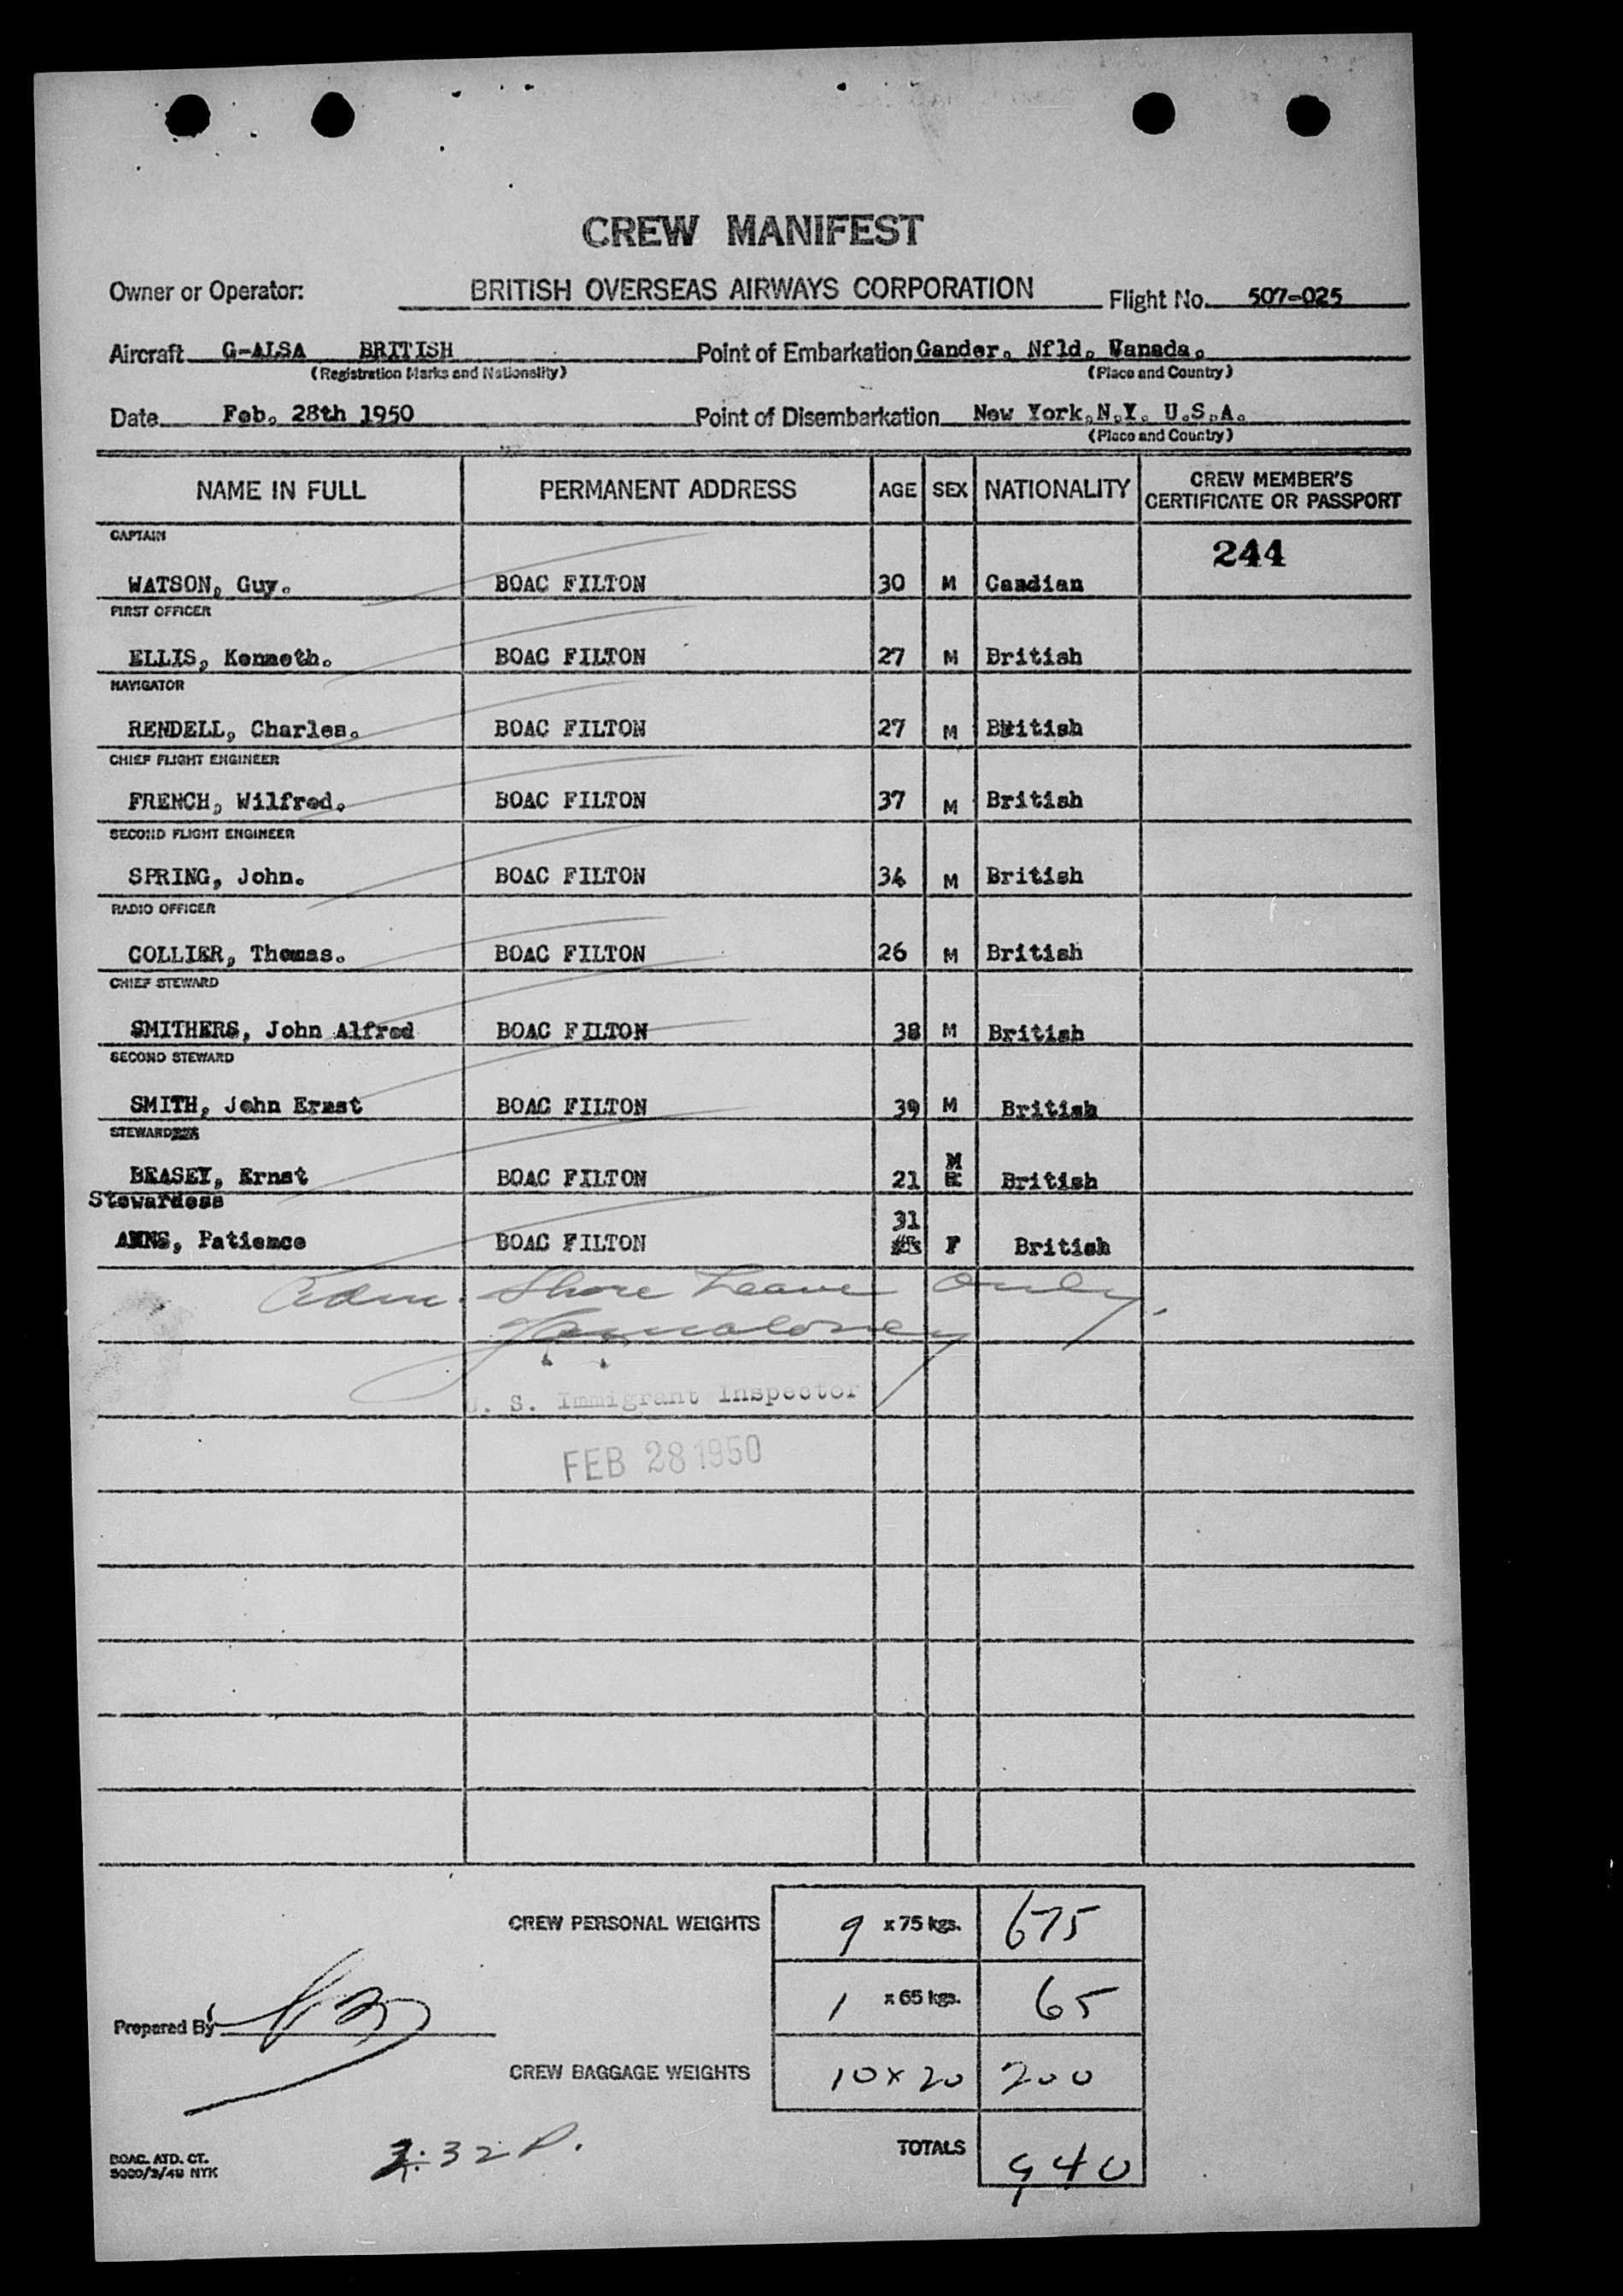 CREW MANIFEST
Owner or Operator: BRITISH OVERSEAS AIRWAYS CORPORATION Flight No. 507-025
Aircraft G-ALSA BRITISH Point of Embarkation Gander. Nfld. Wanada.
(Registration Marks and Nationality) (Place and Country)
Date Feb. 28th 1950 Point of Disembarkation New York,N.Y. U.S.A.
(Place and Country)
NAME IN FULL PERMANENT ADDRESS AGE SEX NATIONALITY CREW MEMBER'S CERTIFICATE OR PASSPORT
CAPTAIN 244
WATSON, Guy. BOAC FILTON 30 M Caadian
FIRST OFFICER
ELLIS, Kenneth. BOAC FILTON 27 M British
NAVIGATOR
RENDELL, Charles. BOAC FILTON 27 M British
CHIEF FLIGHT ENGINEER
FRENCH, Wilfred. BOAC FILTON 37 M British
SECOND FLIGHT ENGINEER
SPRING, John. BOAC FILTON 34 M British
RADIO OFFICER
COLLIER, Thomas. BOAC FILTON 26 M British
CHIEF STEWARD
SMITHERS, John Alfred BOAC FILTON 38 M British
SECOND STEWARD
SMITH, John Ernst BOAC FILTON 39 M British
STEWARD
BEASEY, Ernst BOAC FILTON 21 M British
Stewardess
ANNS, Patience BOAC FILTON 31 F British
Adm. Shore Leave Only.
U. S. Immigrant Inspector
FEB 28 1950
CREW PERSONAL WEIGHTS 9 x 75 kgs. 675
1 x 65 kgs. 65
Prepared By
CREW BAGGAGE WEIGHTS 10 x 20 200
TOTALS 940
:32 P.
BOAC. ATD. CT.
5000/3/49 NYK